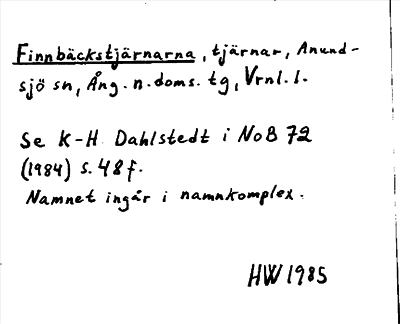 Finnbäckstjärnarna, tjärnar, Anund-
sjö sn, Ång. n. doms. tg, Vrnl. l.
Se K-H Dahlstedt i NoB 72
(1984) s. 48 f.
Namnet ingår i namnkomplex.
HW 1985